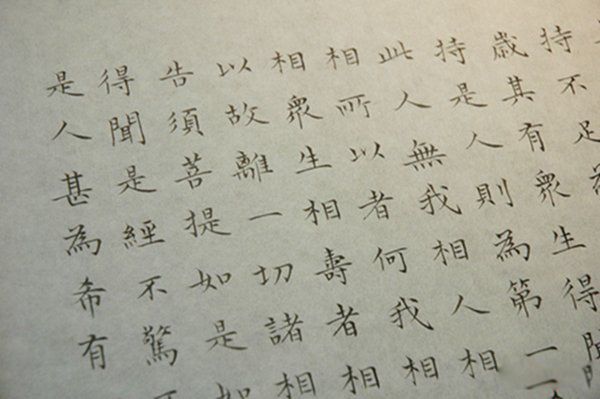 持不足為
歲其有眾生得聞
持是人則為第一
此人無我相人相
相所以者何我相
相眾生相壽者相
以故離一切諸相
告須菩提如是如
得聞是經不驚不
是人甚為希有